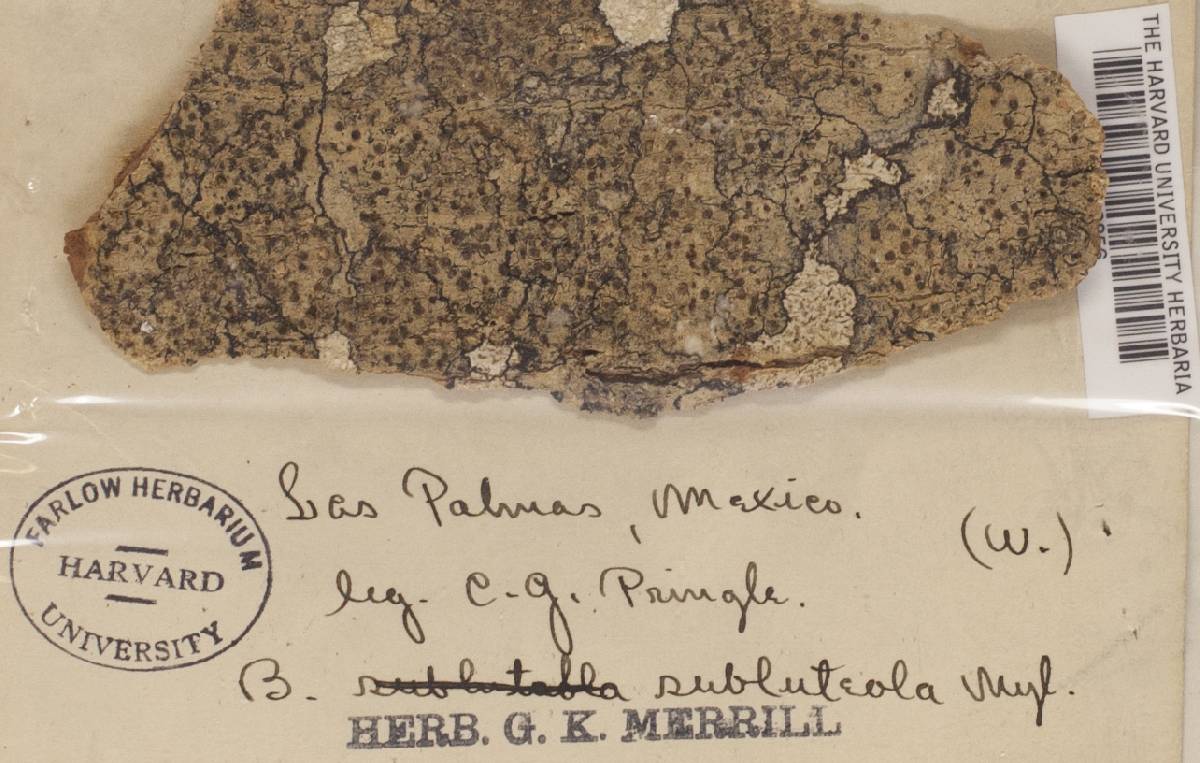 THE HARVARD UNIVERSITY HERBARIA
FARLOW HERBARIUM
HARVARD
UNIVERSITY
Las Palmas, Mexico.
(W.)
leg. C. G. Pringle.
B. subluteola
HERB. G. K. MERRILL